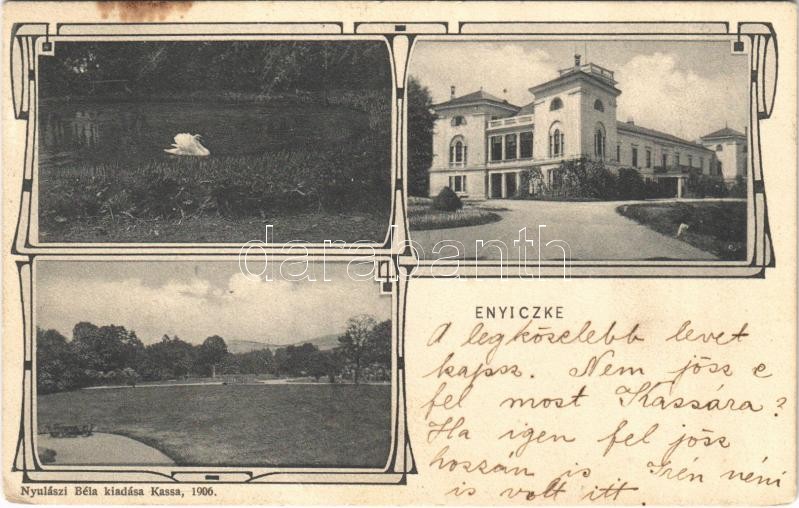 darabanth
ENYICZKE
A legköselebb levet
kapsz. Nem jösz e
fel most Kassára?
Ha igen fel jösz
hoszán is Irén néni
is volt itt.
Nyulászi Béla kiadása Kassa, 1906.